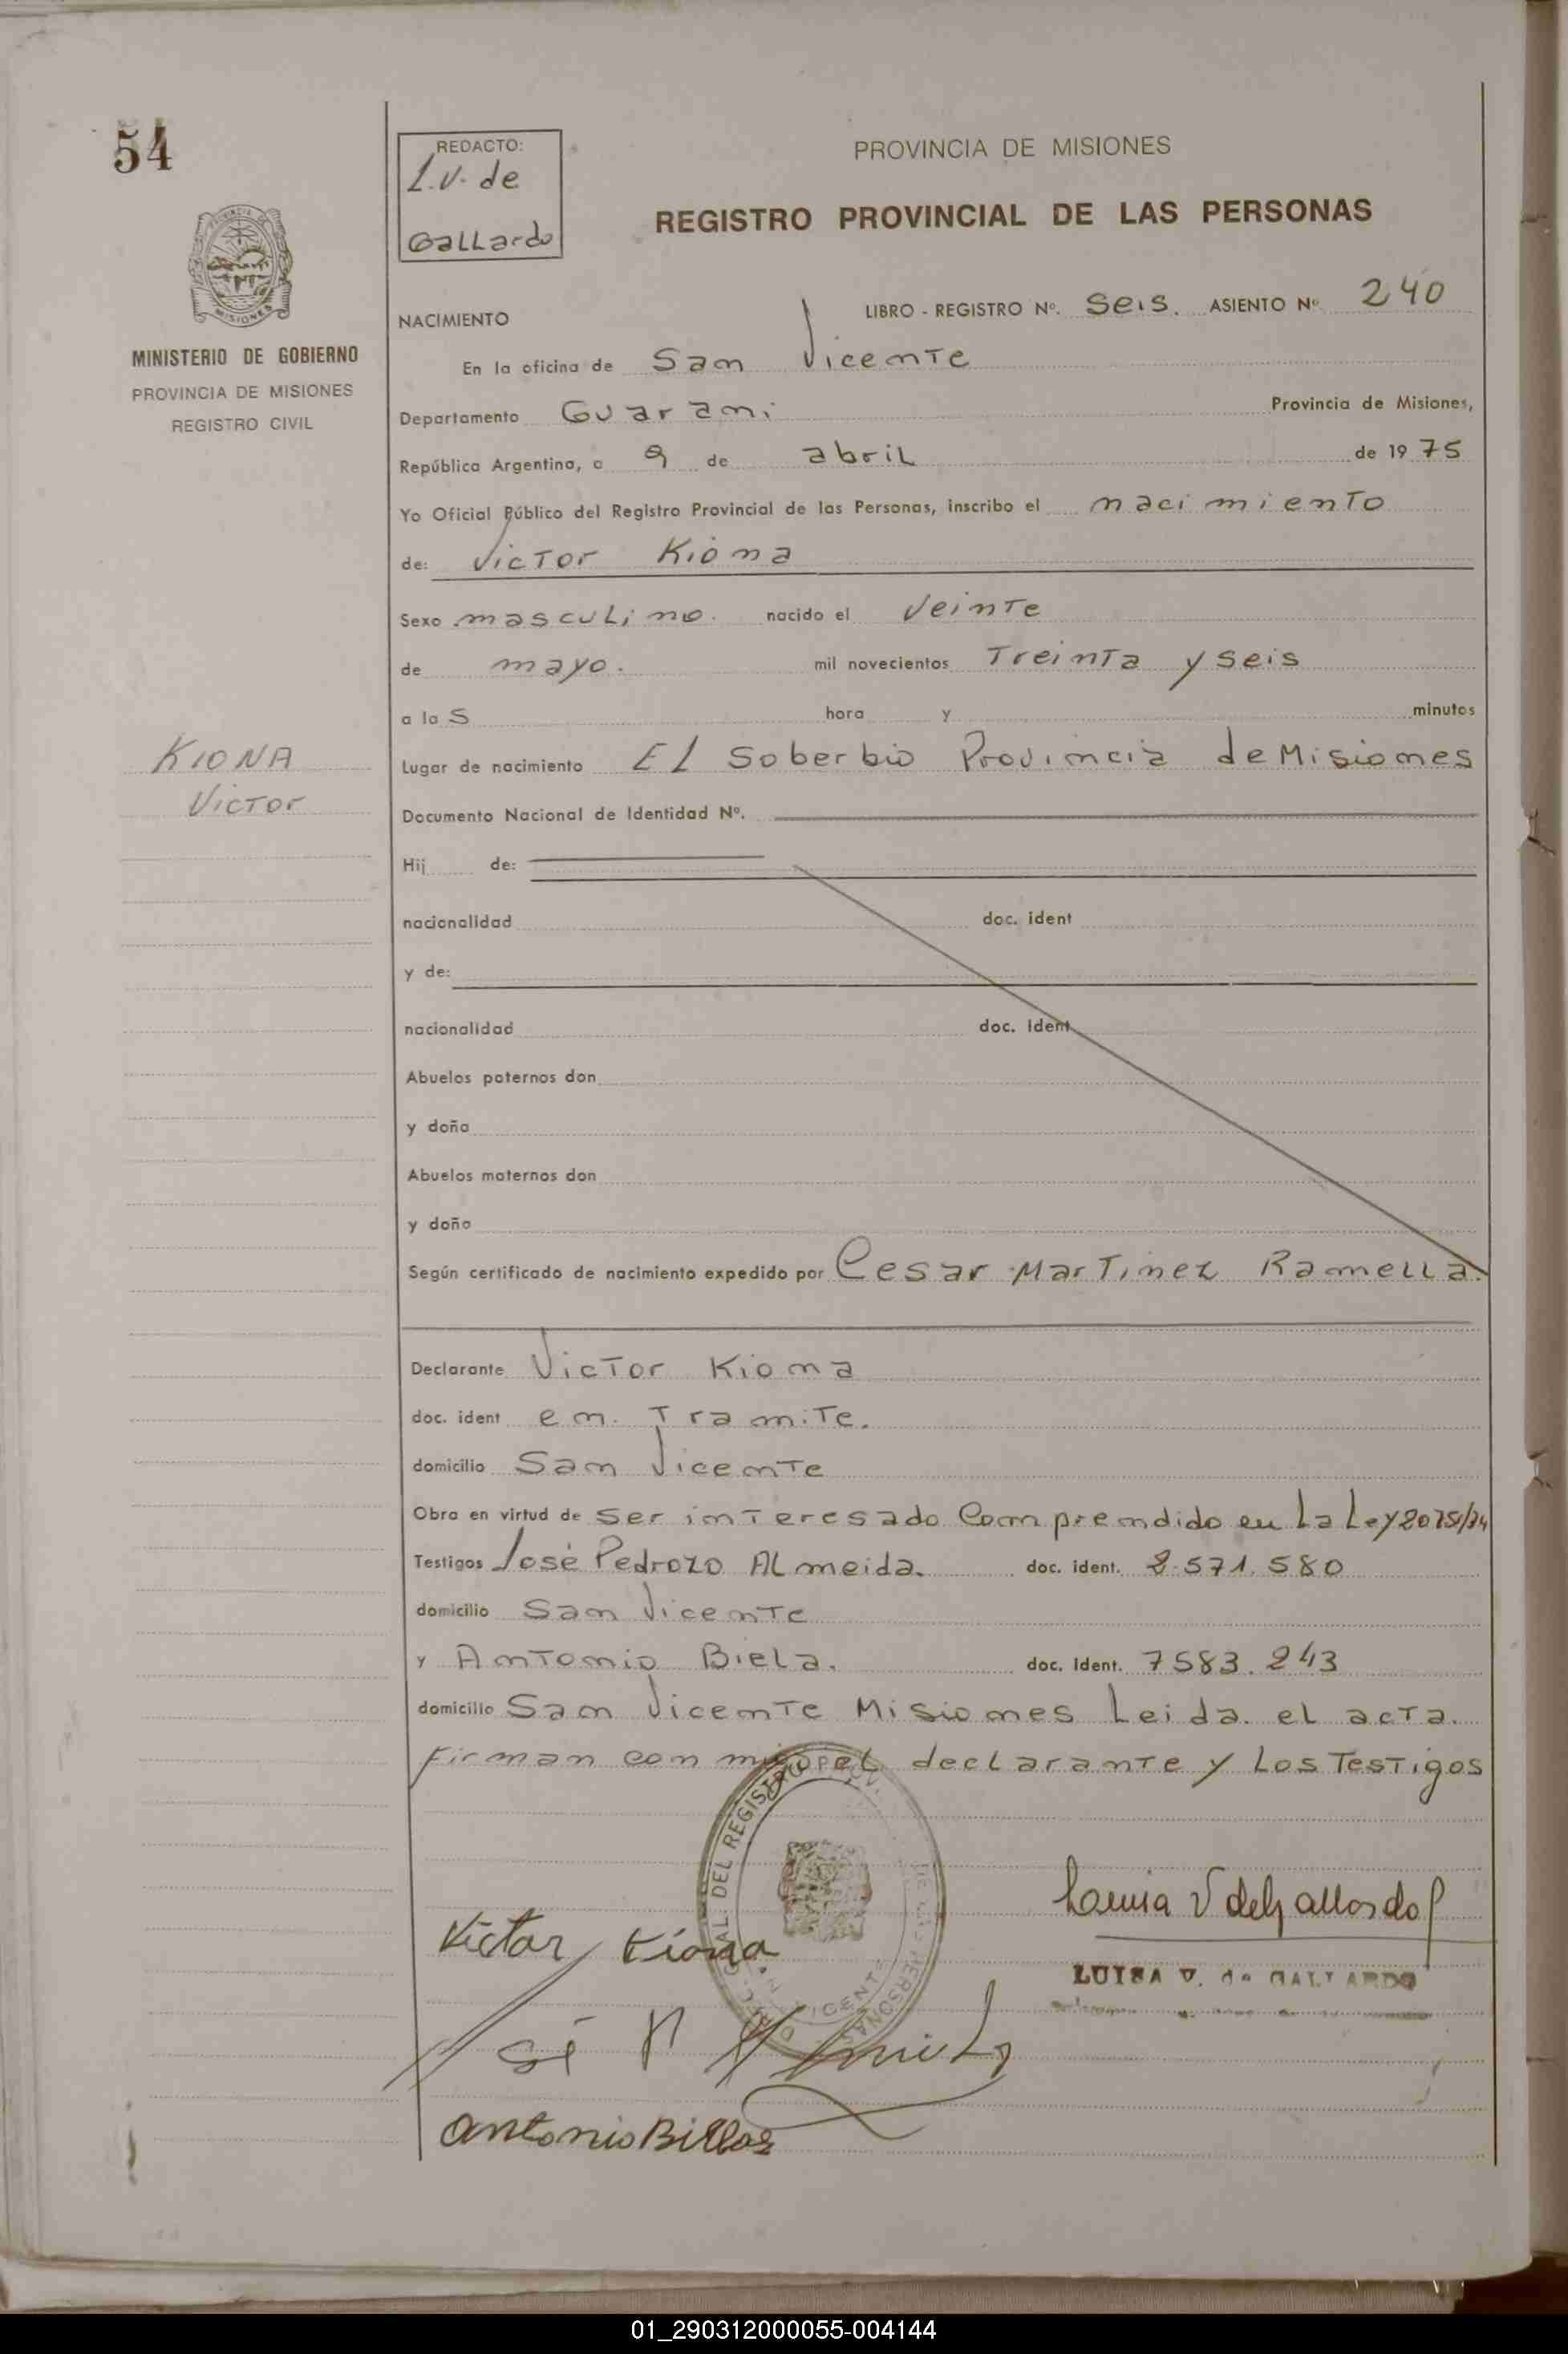 54
REDACTO:
L.V. de
Gallardo
PROVINCIA DE MISIONES
REGISTRO PROVINCIAL DE LAS PERSONAS
MINISTERIO DE GOBIERNO
PROVINCIA DE MISIONES
REGISTRO CIVIL
NACIMIENTO
LIBRO - REGISTRO Nº. Seis. ASIENTO Nº 240
En la oficina de San Vicente
Departamento Guarani Provincia de Misiones,
República Argentina, a 9 de abril de 1975
Yo Oficial Público del Registro Provincial de las Personas, inscribo el nacimiento
de: Victor Kiona
Sexo masculino. nacido el Veinte
de mayo. mil novecientos Treinta y seis
a la S hora y minutos
KIONA
Victor
Lugar de nacimiento El Soberbio Provincia de Misiones
Documento Nacional de Identidad Nº.
Hij de:
nacionalidad doc. ident
y de:
nacionalidad doc. ident
Abuelos paternos don
y doña
Abuelos maternos don
y doña
Según certificado de nacimiento expedido por Cesar Martinez Ramella.
Declarante Victor Kiona
doc. ident en Tramite.
domicilio San Vicente
Obra en virtud de ser interesado Comprendido en La Ley 2075/74
Testigos José Pedrozo Almeida. doc. ident. 2.571.580
domicilio San Vicente
y Antonio Biela. doc. Ident. 7583.243
domicilio San Vicente Misiones Leida el acta.
Firman con migo el declarante y Los Testigos
DEL REGISTRO PROV. DE LAS PERSONAS
VICENTE
Victor Kiona
Luisa V de Gallardo
LUISA V. de GALLARDO
Antonio Billas
01_290312000055-004144